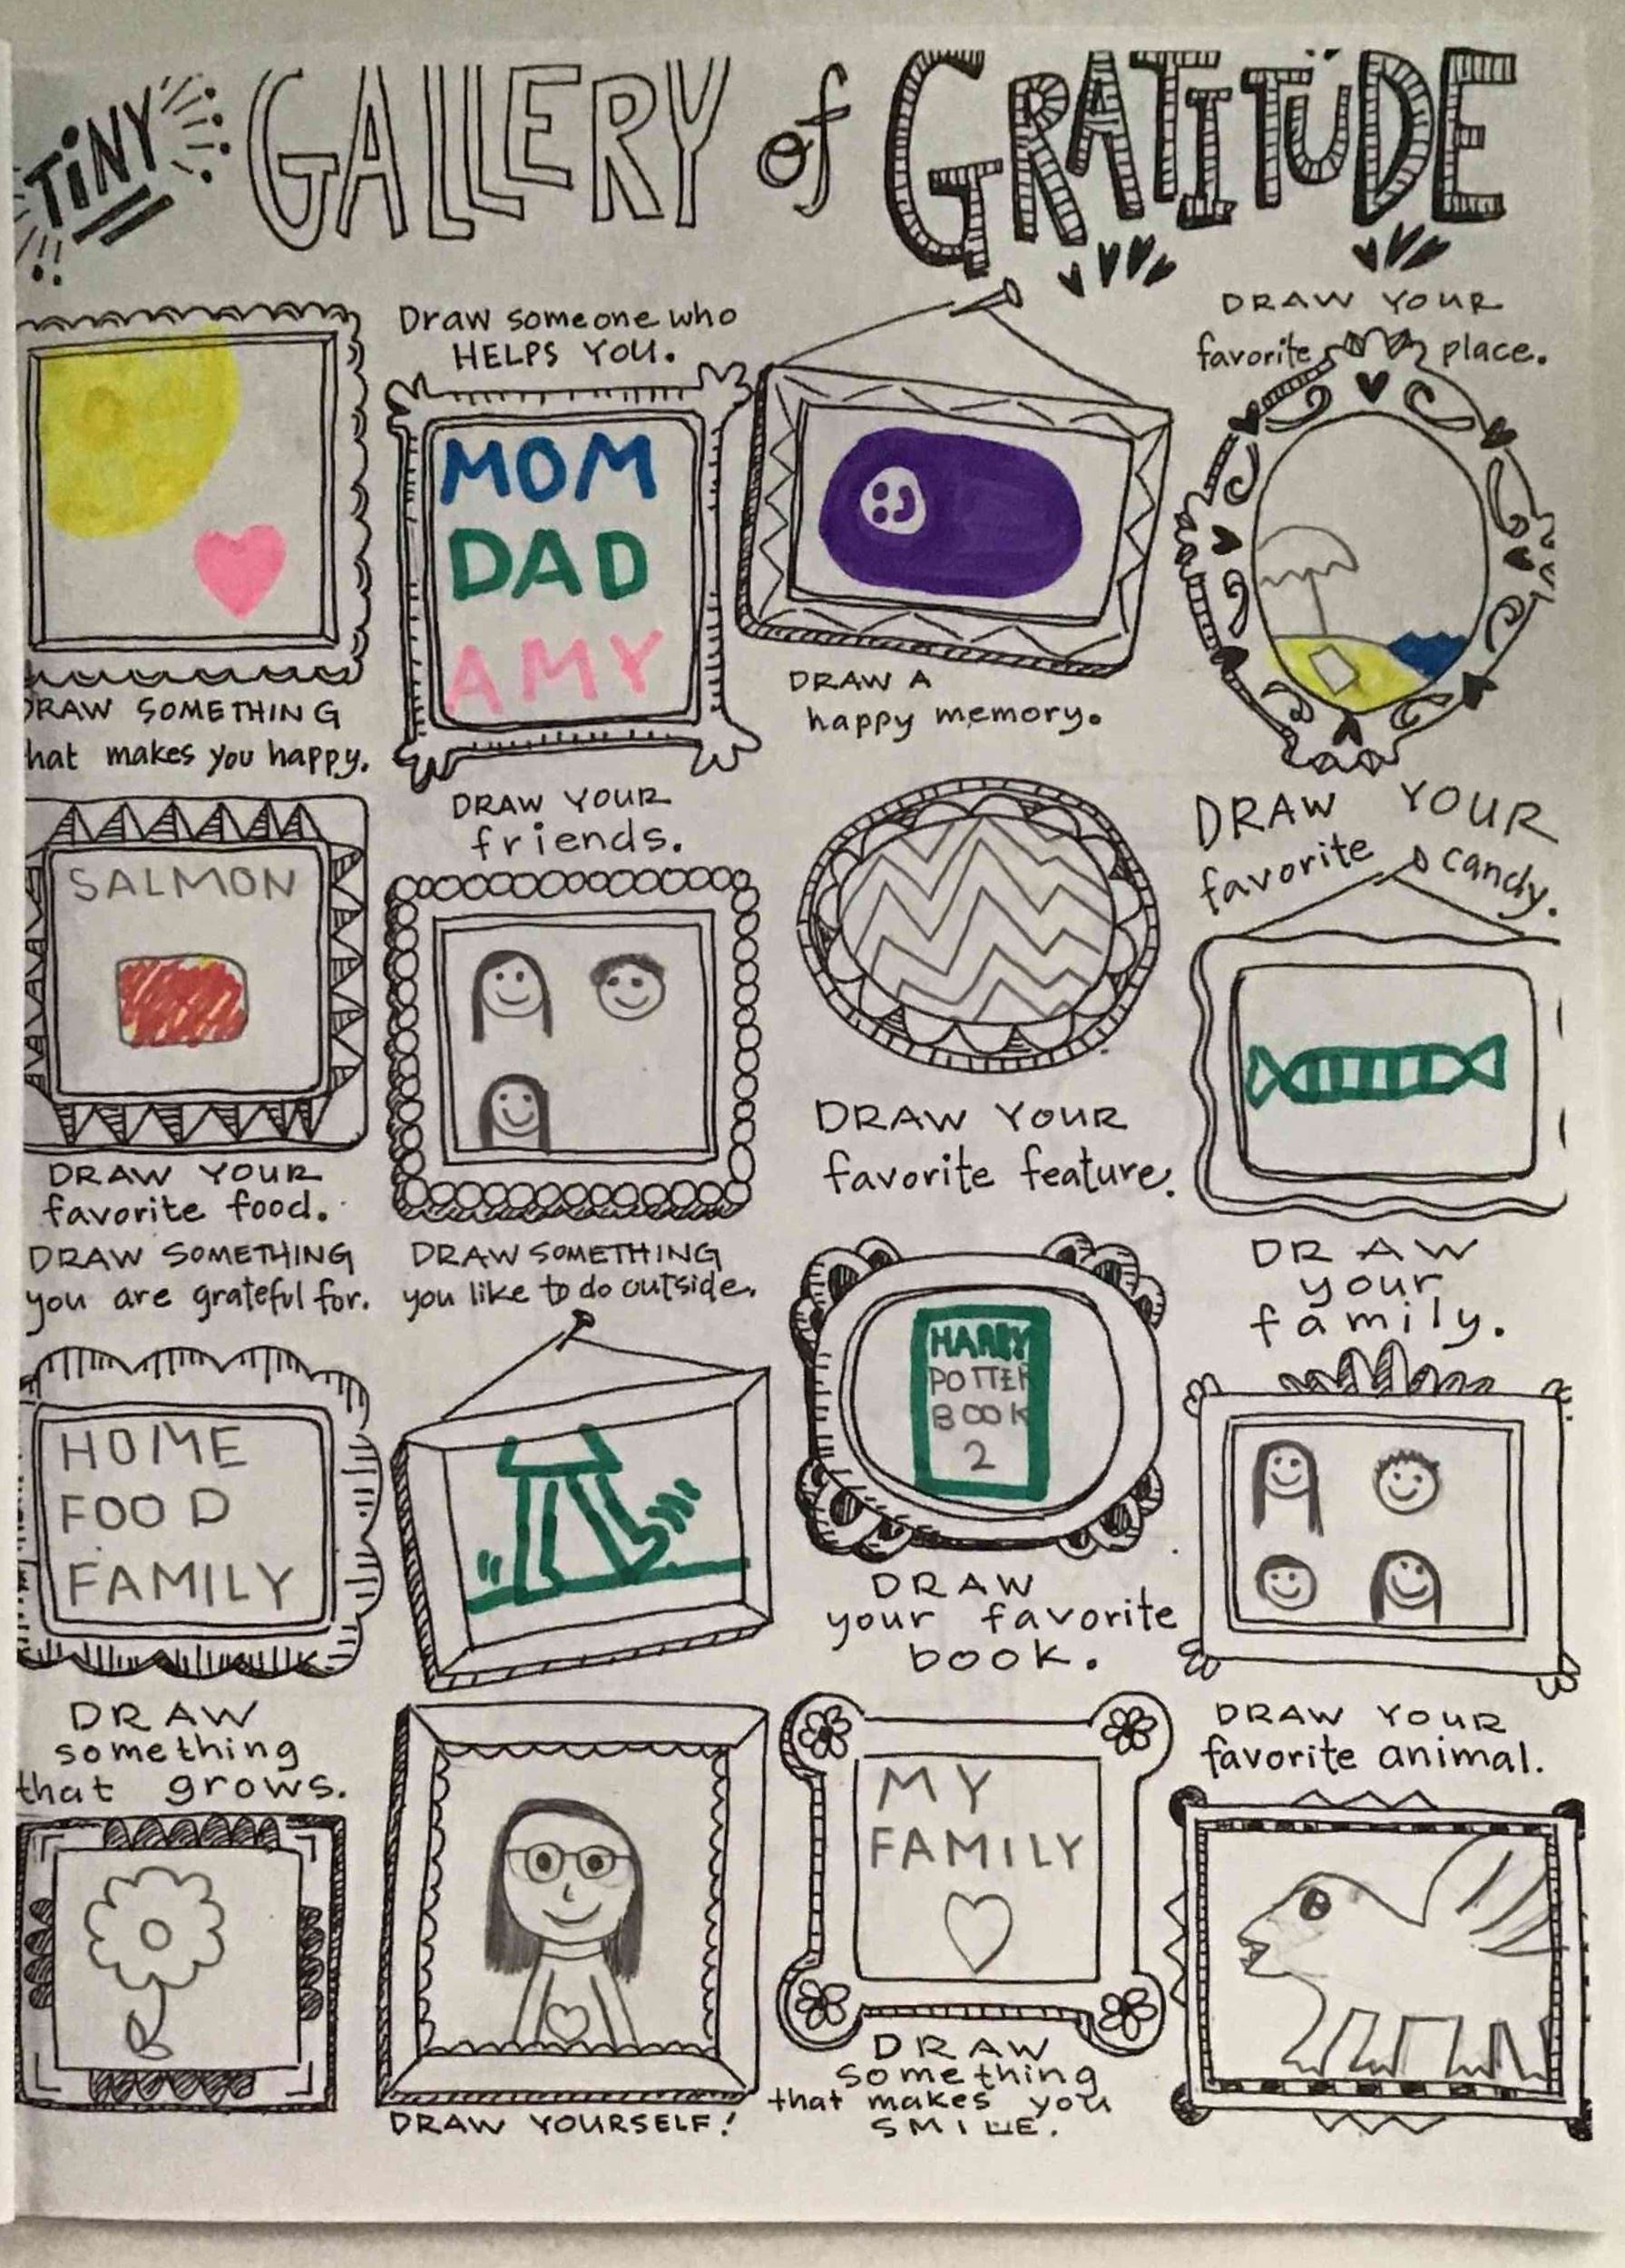 TiNY GALLERY of GRATITUDE
Draw someone who
HELPS YOU.
DRAW YOUR
favorite place.
MOM
DAD
AMY
DRAW SOMETHING
hat makes you happy.
DRAW A
happy memory.
SALMON
DRAW YOUR
favorite food.
DRAW YOUR
friends.
DRAW YOUR
favorite feature.
DRAW YOUR
favorite candy.
DRAW SOMETHING
you are grateful for.
HOME
FOOD
FAMILY
DRAW SOMETHING
you like to do outside.
HARRY
POTTER
BOOK
2
DRAW
your favorite
book.
DRAW
your
family.
DRAW
something
that grows.
DRAW YOURSELF!
MY
FAMILY
DRAW
something
that makes you
SMILE.
DRAW YOUR
favorite animal.